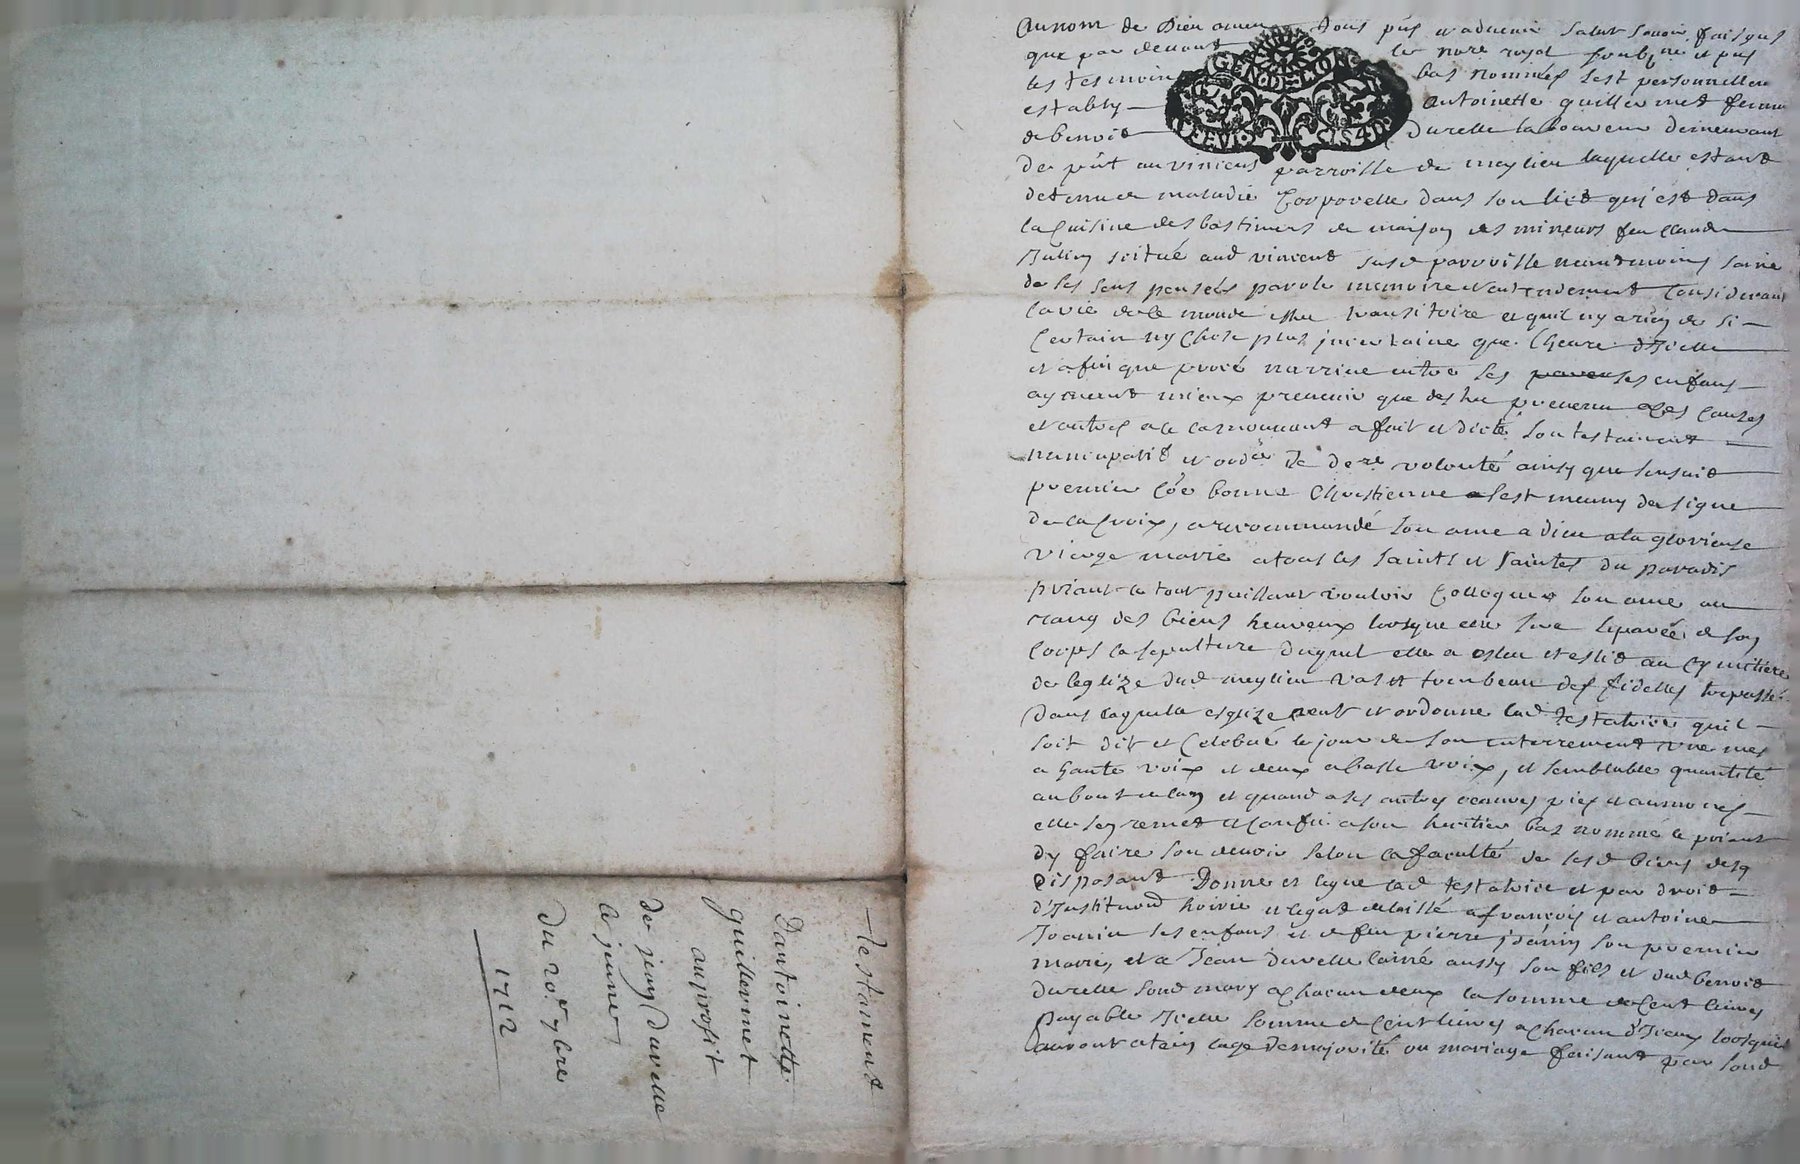 Testament
Dantoinette
guillermet
au profit
de jean Durelle
le jeune
du 20.e 9bre
1712
Au nom de Dieu amen Tous pñs et advenir Salut Savoir faisons
que par devant le nore royal soubzné et pñs
les tesmoins bas nommés sest personnellem
estably Antoinette guillermet femme
de benoit Durelle laboureur demeurant
GEN.DE.LION
De pñt au viniens parroisse de meylieu laquelle estant
detenue maladie Corporelle dans son lict qui est dans
la Cuisine des bastimens de maison des mineurs feu Claude
situé aud vincent susd parroisse neantmoins saine
de ses sens pensées parole memoire et entendement Considerant
la vie de le monde estre transitoire et quil ny a rien de si
Certain ny Chose plus incertaine que lheure dIcelle
et afin que procé narrive entre les ses enfans
aymant mieux prevenir que destre prevenue a Ces Causes
et autres a le a fait et dicté son testament
nuncupatif et ordce de dere volonté ainsy que sensuit
premier Cõe bonne Chrestienne sest meuny du signe
de la Croix, a recommandé son ame a Dieu a la glorieuse
vierge marie a tous les saints et saintes du paradis
priant le tout puissant vouloir Colloquer son ame au
rang des biens heureux lorsque elle sera séparée de son
Corps la sepulture duquel elle a esleu et eslit au Cymitiere
de leglize dud meylieu vas et tombeau des fidelles trepassés
Dans laquelle esglize veut et ordonne lad Testatrice quil
soit dit et Celebré le jour de son enterrement une mes
a haute voix et deux a basse voix, et semblable quantité
au bout de lan et quand a ses autres œuvres pies et aumones
elle sen remet et Confie a son heritier bas nommé le priant
dy faire son devoir selon la faculté de sesd biens desq
Disposant Donne et legue lad testatrice et par droit
dInstitution hoirie et legat delaissé a françois et antoine
Joanin ses enfans et de feu pierre joanin son premier
mary, et a Jean Durelle lainé aussy son fils et dud benoit
Durelle sond mary a Chacun deux la somme de Cent livres
payable Icelle somme de Cent livres a Chacun dIceux lorsquils
auront atein lage de majorité ou mariage faisant par sond